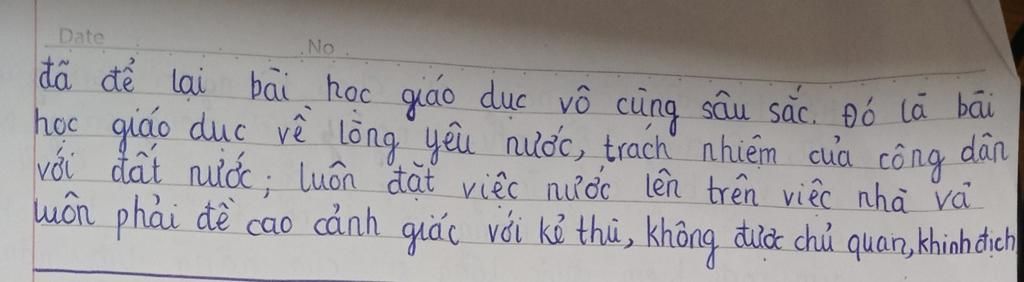 Date No
đã để lại bài học giáo dục vô cùng sâu sắc. Đó là bài
học giáo dục về lòng yêu nước, trách nhiệm của công dân
với đất nước; luôn đặt việc nước lên trên việc nhà và
luôn phải đề cao cảnh giác với kẻ thù, không được chủ quan, khinh địch